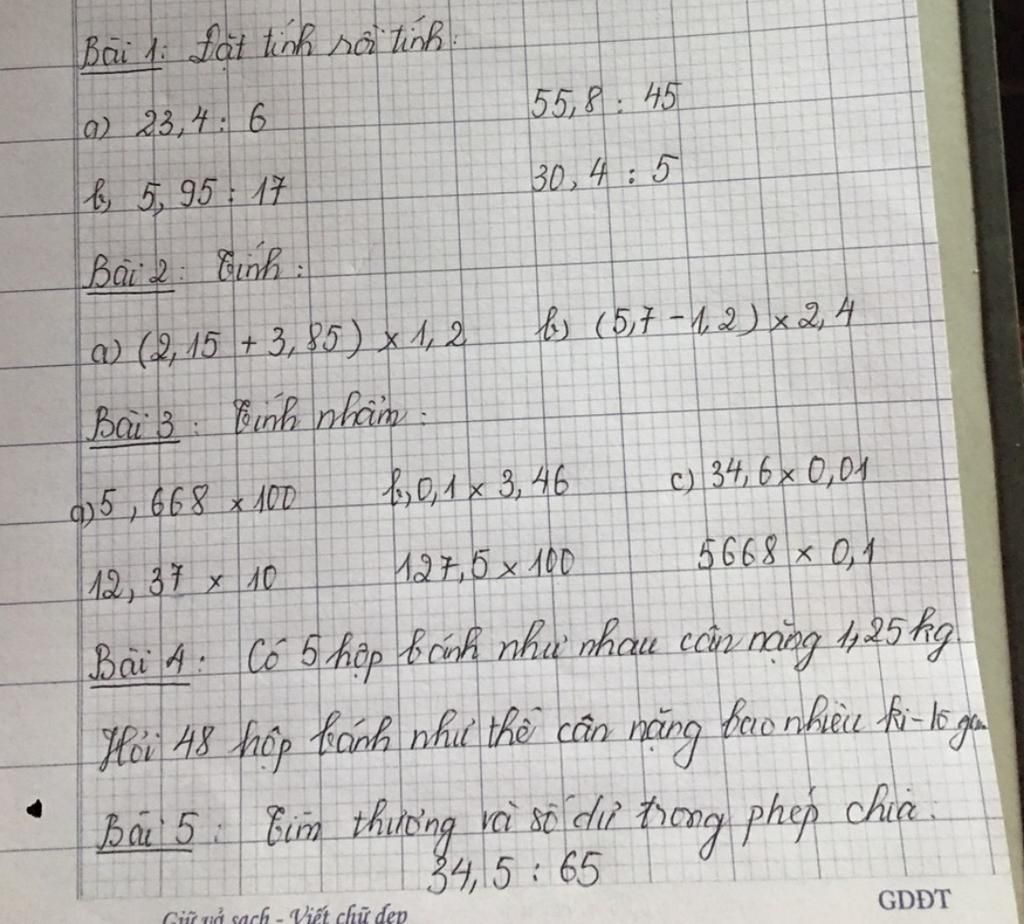 Bài 1: Đặt tính rồi tính:
a) 23,4 : 6 55,8 : 45
b, 5,95 : 17 30,4 : 5
Bài 2: Tính:
a) (2,15 + 3,85) × 1,2 b) (5,7 - 1,2) × 2,4
Bài 3: Tính nhẩm:
a) 5,668 × 100 b, 0,1 × 3,46 c) 34,6 × 0,01
12,37 × 10 127,5 × 100 5668 × 0,1
Bài 4: Có 5 hộp bánh như nhau cân nặng 1,25 kg.
Hỏi 48 hộp bánh như thế cân nặng bao nhiêu ki-lô gam
Bài 5: Tìm thương và số dư trong phép chia:
34,5 : 65
Giữ vở sạch - Viết chữ đẹp GDĐT